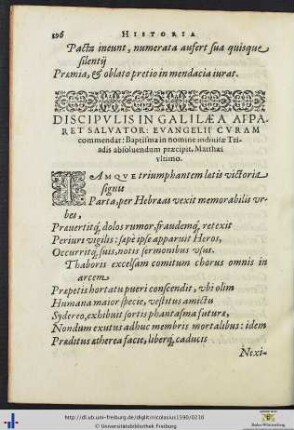 106 HISTORIA
Pacta ineunt, numerata aufert sua quisque
silentij
Præmia, & oblato pretio in mendacia iurat.
DISCIPVLIS IN GALILÆA APPA-
RET SALVATOR: EVANGELII CVRAM
commendat: Baptisma in nomine indiuiæ Tri-
adis absoluendum præcipit. Matthæi
vltimo.
IAMQVE triumphantem latis victoria
signis
Parta, per Hebræas vexit memorabilis vr-
bes,
Præuertitq́, dolos rumor, fraudemq́, retexit
Periuri vigilis: sæpè ipse apparuit Heros,
Occurritq́, suis, notis sermonibus vsus.
Thaboris excelsam comitum chorus omnis in
arcem
Præpetis hortatu pueri conscendit, vbi olim
Humana maior specie, vestitus amictu
Sydereo, exhibuit sortis phantasma futuræ,
Nondum exutus adhuc membris mortalibus: idem
Præditus ætherea facie, liberq́, caducis
Nexi-
http://dl.ub.uni-freiburg.de/diglit/nicolasius1590/0216
© Universitätsbibliothek Freiburg